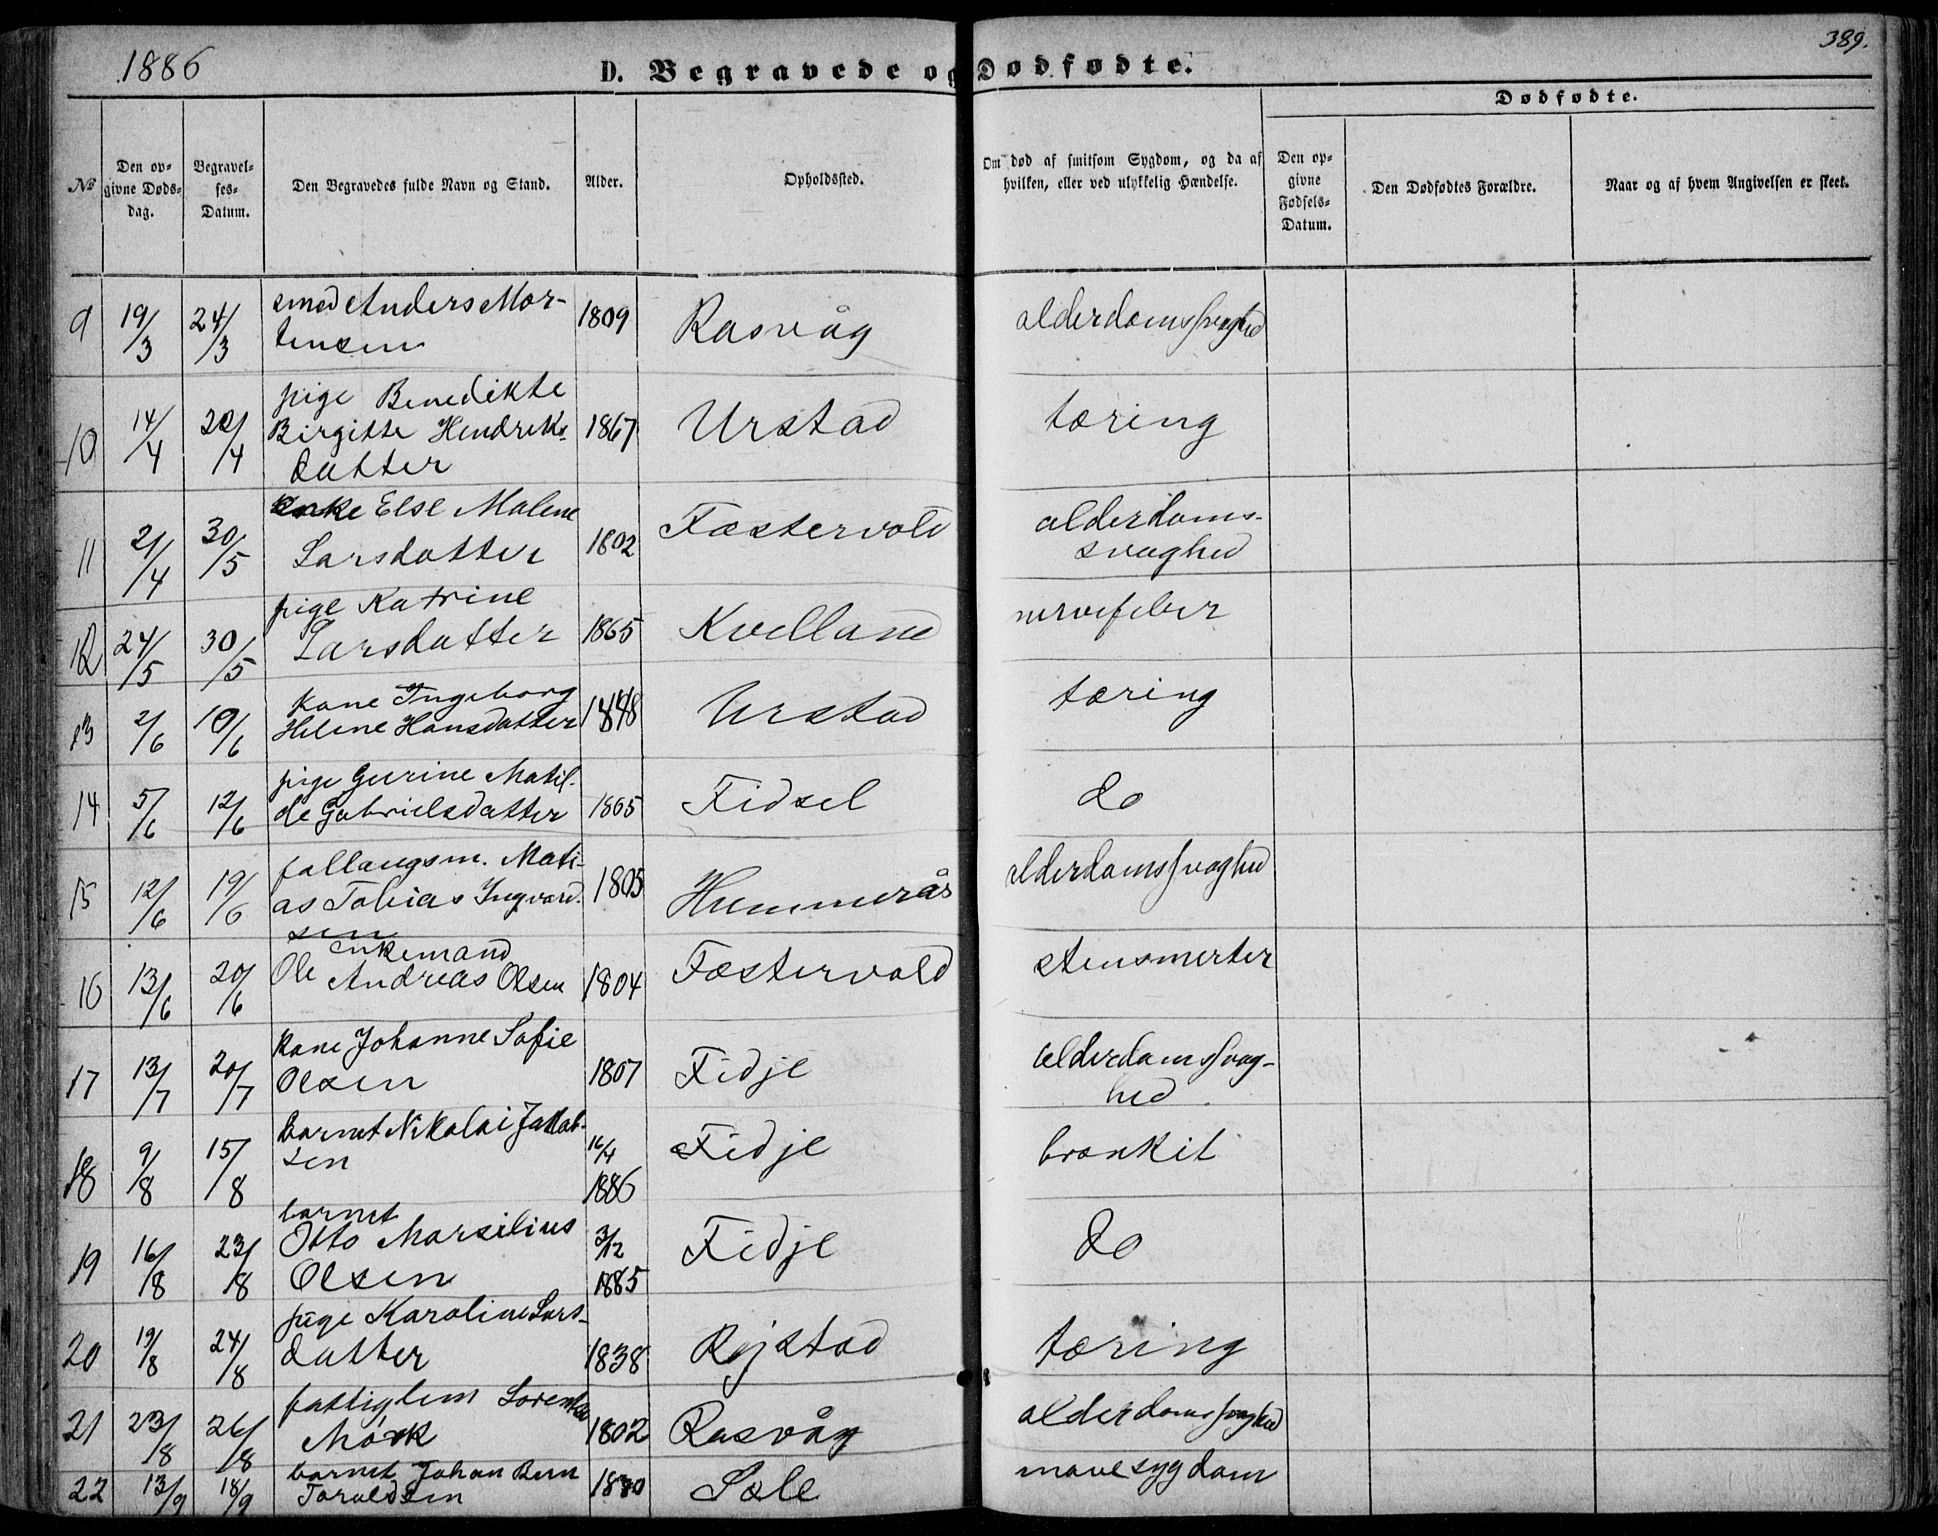 1886
389.
D. Begravede og Dødfødte.
Dødfødte.
No
Den opgivne Dødsdag.
Begravelses-Datum.
Den Begravedes fulde Navn og Stand.
Alder.
Opholdssted.
Om død af smitsom Sygdom, og da af hvilken, eller ved ulykkelig Hændelse.
Den opgivne Fødsels-Datum.
Den Dødfødtes Forældre.
Naar og af hvem Angivelsen er skeet.
9 19/3 24/3 smed Anders Mor-
tensen 1809 Rasvåg alderdomssvaghed
10 14/4 22/4 pige Benedikte
Birgitte Hendriks-
datter 1867 Urstad tæring
11 2/4 30/5 enke Else Malene
Larsdatter 1802 Fæstervold alderdoms-
svaghed
12 24/5 30/5 pige Katrine
Larsdatter 1865 Kvelland nervefeber
13 2/6 10/6 kone Ingeborg
Helene Hansdatter 1848 Urstad tæring
14 5/6 12/6 pige Gurine Matil-
de Gabrielsdatter 1865 Fidsel do
15 12/6 19/6 follaugsm. Mati-
as Tobias Ingvard-
sen 1805 Hummerås alderdomssvaghed
16 13/6 20/6 enkemand
Ole Andreas Olsen 1804 Fæstervold stensmerter
17 13/7 20/7 kone Johanne Sofie
Olsen 1807 Fidje alderdomssvag-
hed
18 9/8 15/8 barnet Nikolai Jakob-
sen 16/4 1886 Fidje bronkit
19 16/8 23/8 barnet
Otto Marsilius
Olsen 3/12 1885 Fidje do
20 19/8 24/8 pige Karoline Lars-
datter 1838 Røjstad tæring
21 23/8 26/8 fattiglem Lorentse
Mørk 1802 Rasvåg alderdomssvaghed
22 13/9 18/9 barnet Johan Bern
Toraldsen 1880 Sæle mavesygdom